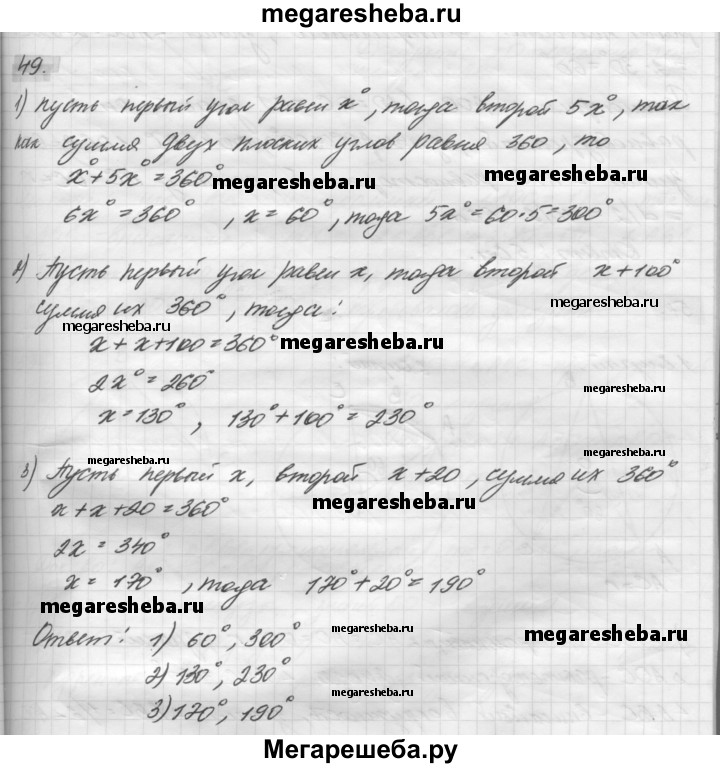 megaresheba.ru
49.
1) пусть первый угол равен x°, тогда второй 5x°, так
как сумма двух плоских углов равна 360, то
x°+5x°=360°
megaresheba.ru
megaresheba.ru
6x°=360°, x=60°, тогда 5x°=60·5=300°
2) Пусть первый угол равен x, тогда второй x+100°
сумма их 360°, тогда:
megaresheba.ru
megaresheba.ru
x+x+100=360°
megaresheba.ru
2x°=260°
megaresheba.ru
x=130°, 130°+100°=230°
megaresheba.ru
megaresheba.ru
3) Пусть первый x, второй x+20, сумма их 360°
x+x+20=360°
megaresheba.ru
2x=340°
x=170°, тогда 170°+20°=190°
megaresheba.ru
Ответ: 1) 60°, 300°
megaresheba.ru
megaresheba.ru
2) 130°, 230°
megaresheba.ru
3) 170°, 190°
Мегарешеба.ру